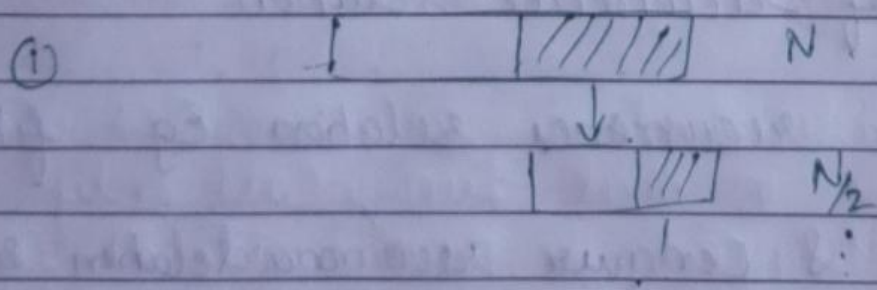 ① N
N/2
⋮